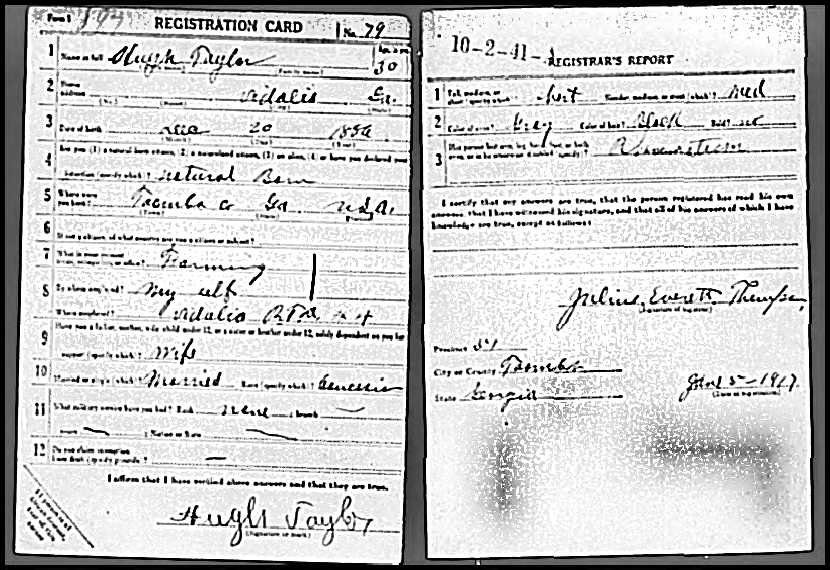 Form 1 REGISTRATION CARD No. 79
1 Name in full Hugh Taylor Age, in yrs. 30
(Family name)
2 Home address Vidalia Ga.
(No.) (Street) (City) (State)
3 Date of birth 20
(Month) (Day) (Year)
4 Are you (1) a natural born citizen, (2) a naturalized citizen, (3) an alien, (4) or have you declared your
intention (specify which)? natural Born
5 Where were you born? Toombs co Ga U.S.A.
(Town) (State)
6 If not a citizen, of what country are you a citizen or subject?
7 What is your present trade, occupation, or office? Farming
8 By whom employed? My self
Where employed? Vidalia
9 Have you a father, mother, wife, child under 12, or a sister or brother under 12, solely dependent on you for
support (specify which)? Wife
10 Married or single (which)? Married Race (specify which)? Caucasian
11 What military service have you had? Rank none ; branch —
years — ; Nation or State —
12 Do you claim exemption from draft (specify grounds)? —
I affirm that I have verified above answers and that they are true.
Hugh Taylor
(Signature or mark)
10-2-41-
REGISTRAR'S REPORT
1 Tall, medium, or short (specify which)? short Slender, medium, or stout (which)? Med
2 Color of eyes? Gray Color of hair? Black Bald? no
3 Has person lost arm, leg, hand, foot, or both
eyes, or is he otherwise disabled (specify)?
I certify that my answers are true, that the person registered has read his own
answers, that I have witnessed his signature, and that all of his answers of which I have
knowledge are true, except as follows:
Julius Everett Thompson
(Signature of registrar)
Precinct
City or County Toombs
State Georgia June 5-1917
(Date of registration)